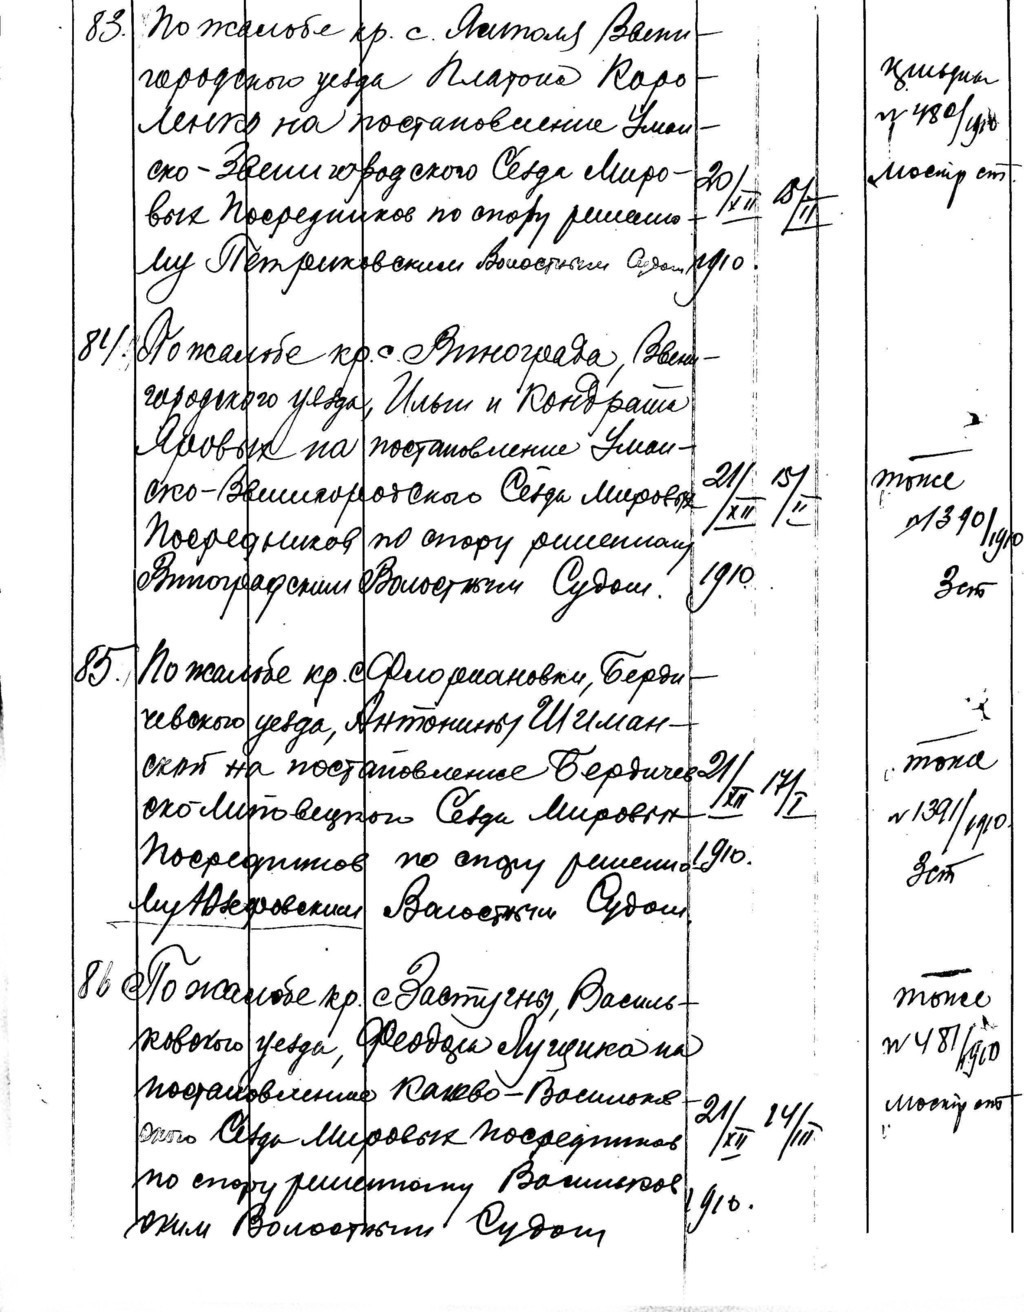 83. По жалобе кр. с. Звени-
городского уезда Платона Коро-
ленко на постановление Уман-
ско-Звенигородского Сезда Миро-
вых Посредников по спору решенно-
му Петриковским Волостным Судом
20/XII 1910.
№ 480/1910
84. По жалобе кр. с. Винограда, Звени-
городского уезда, Ильи и Кондрата
Яровых на постановление Уман-
ско-Звенигородского Сезда Мировых
Посредников по спору решенному
Виноградским Волостным Судом.
21/XII 1910.
15/II
тоже
№ 1390/1910
3 ст
85. По жалобе кр. с. Флориановки, Берди-
чевского уезда, Антонины Шиман-
ской на постановление Бердичев
ско Липовецкого Сезда Мировых
Посредников по спору решенно-
му Волостным Судом.
21/XII 1910.
17/I
тоже
№ 1391/1910.
3 ст
86 По жалобе кр. с. Застугны, Василь-
ковского уезда, Феодосия Лущика на
постановление Киево-Васильков-
ского Сезда Мировых Посредников
по спору решенному Васильков
ским Волостным Судом
21/XII 1910.
14/III
тоже
№ 481/1910